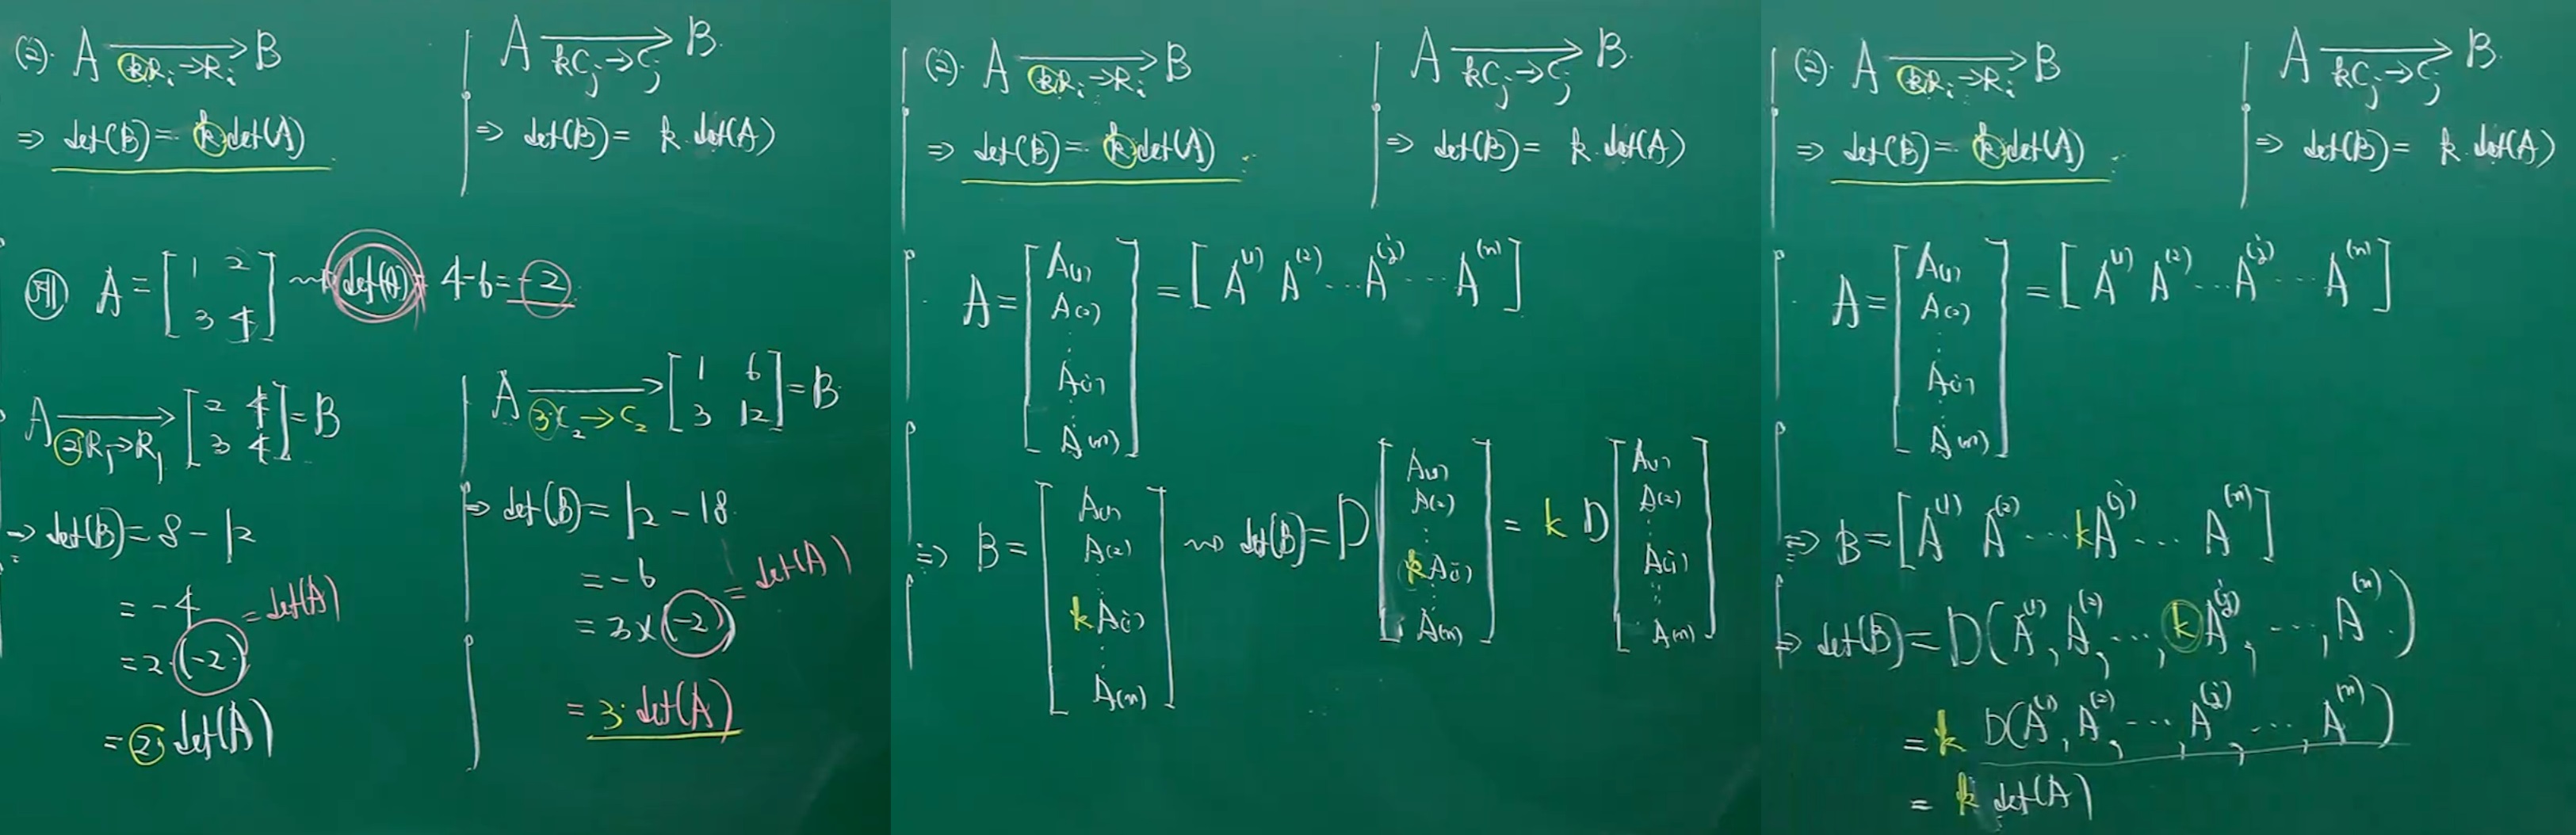 (2). A →(kRᵢ→Rᵢ) B
⇒ det(B) = k det(A)
A →(kCⱼ→Cⱼ) B.
⇒ det(B) = k·det(A)
예) A = [1 2; 3 4] ⇝ det(A) = 4-6 = -2
A →(2R₁→R₁) [2 4; 3 4] = B
⇒ det(B) = 8 - 12
= -4
= 2·(-2) = det(A)
= 2·det(A)
A →(3·C₂→C₂) [1 6; 3 12] = B.
⇒ det(B) = 12 - 18
= -6
= 3×(-2) = det(A)
= 3·det(A)
(2). A →(kRᵢ→Rᵢ) B
⇒ det(B) = k det(A)
A →(kCⱼ→Cⱼ) B.
⇒ det(B) = k·det(A)
A = [A₍₁₎; A₍₂₎; ⋮; A₍ᵢ₎; ⋮; A₍ₙ₎] = [A⁽¹⁾ A⁽²⁾ ⋯ A⁽ʲ⁾ ⋯ A⁽ⁿ⁾]
⇒ B = [A₍₁₎; A₍₂₎; ⋮; kA₍ᵢ₎; ⋮; A₍ₙ₎] ⇝ det(B) = D[A₍₁₎; A₍₂₎; ⋮; kA₍ᵢ₎; ⋮; A₍ₙ₎] = k D[A₍₁₎; A₍₂₎; ⋮; A₍ᵢ₎; ⋮; A₍ₙ₎]
(2). A →(kRᵢ→Rᵢ) B
⇒ det(B) = k det(A)
A →(kCⱼ→Cⱼ) B.
⇒ det(B) = k·det(A)
A = [A₍₁₎; A₍₂₎; ⋮; A₍ᵢ₎; ⋮; A₍ₙ₎] = [A⁽¹⁾ A⁽²⁾ ⋯ A⁽ʲ⁾ ⋯ A⁽ⁿ⁾]
⇒ B = [A⁽¹⁾ A⁽²⁾ ⋯ kA⁽ʲ⁾ ⋯ A⁽ⁿ⁾]
⇒ det(B) = D(A⁽¹⁾, A⁽²⁾, ⋯, kA⁽ʲ⁾, ⋯, A⁽ⁿ⁾)
= k D(A⁽¹⁾, A⁽²⁾, ⋯, A⁽ʲ⁾, ⋯, A⁽ⁿ⁾)
= k det(A)